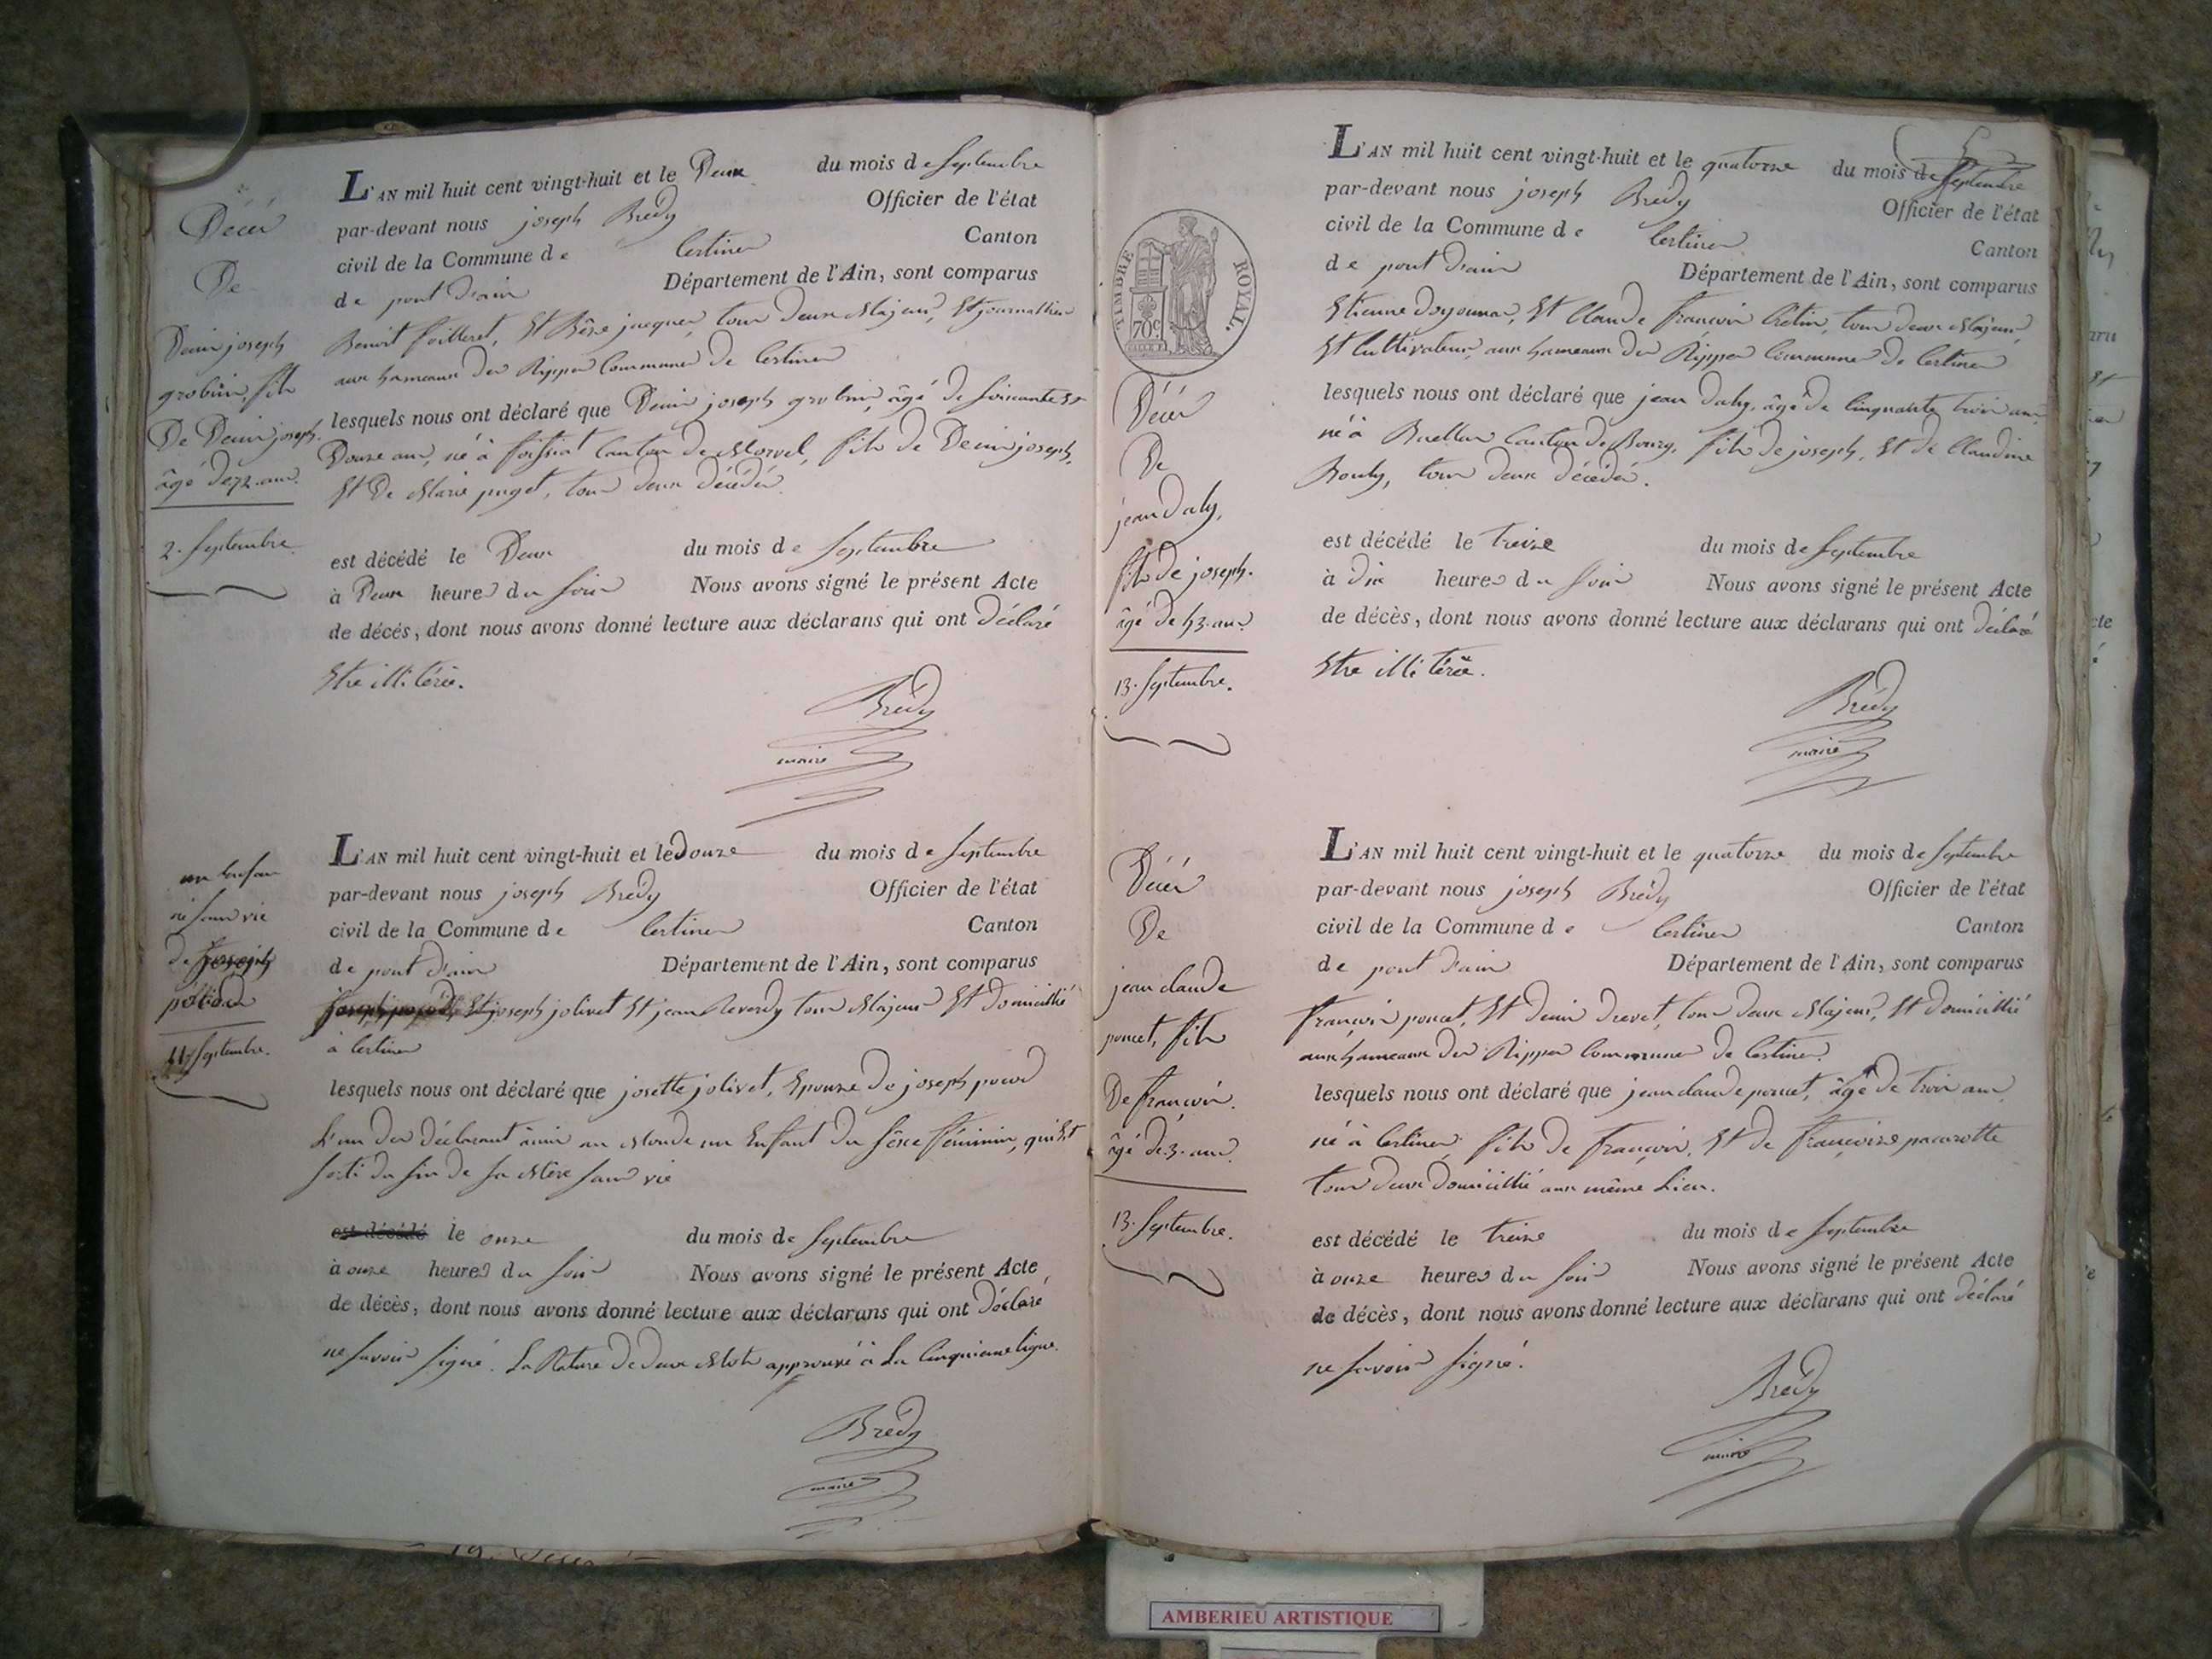 Décès
De
Denis joseph
grobon, fils
De Denis joseph.
âgé de 72 ans.
2. Septembre
L'AN mil huit cent vingt-huit et le Deux du mois de Septembre
par-devant nous joseph Brédy Officier de l'état
civil de la Commune de Certines Canton
de pont d'ain Département de l'Ain, sont comparus
Benoit St jacques, tous deux Majeurs, Et journalliers
aux hameaux des Rippes Commune de Certines
lesquels nous ont déclaré que Denis joseph grobon, âgé de soixante Et
Douze ans, né à foissiat Canton de Marvel, fils de Denis joseph,
Et De Marie puget, tous deux décédés.
est décédé le Deux du mois de Septembre
à Deux heures du soir Nous avons signé le présent Acte
de décès, dont nous avons donné lecture aux déclarans qui ont Déclaré
Etre illitérée.
Brédy
maire
un Enfans
né sans vie
de joseph
11 Septembre.
L'AN mil huit cent vingt-huit et le Douze du mois de Septembre
par-devant nous joseph Brédy Officier de l'état
civil de la Commune de Certines Canton
de pont d'ain Département de l'Ain, sont comparus
Et joseph jolivet Et jean Reverdy tous Majeurs Et domicillié
à Certines
lesquels nous ont déclaré que josette jolivet, Epouze de joseph
L'un des déclarant à mis au Monde un Enfant du Séxe féminin, qui Est
sorti du sin de sa Mère sans vie
est décédé le onze du mois de Septembre
à onze heures du soir Nous avons signé le présent Acte
de décès, dont nous avons donné lecture aux déclarans qui ont Déclaré
ne savoir signé. La Rature de deux Mots approuvé à la Cinquieme ligne.
Brédy
maire
TIMBRE ROYAL.
70 c.
Décès
De
jean Daly,
fils de joseph.
âgé de 53. ans.
13. Septembre.
L'AN mil huit cent vingt-huit et le quatorze du mois de Septembre
par-devant nous joseph Brédy Officier de l'état
civil de la Commune de Certines Canton
de pont d'ain Département de l'Ain, sont comparus
Etienne Et Claude françois Crétin, tous deux Majeurs,
Et Cultivateurs aux hameaux des Rippes Commune de Certines
lesquels nous ont déclaré que jean Daly, âgé de Cinquante trois ans
né à Buellas Canton de Bourg, fils de joseph, Et de Claudine
Bouly, tous deux décédés.
est décédé le treize du mois de Septembre
à dix heures du soir Nous avons signé le présent Acte
de décès, dont nous avons donné lecture aux déclarans qui ont déclaré
Etre illitérée.
Brédy
maire
Décès
De
jean claude
poncet, fils
De françois.
âgé de 3. ans.
13. Septembre.
L'AN mil huit cent vingt-huit et le quatorze du mois de Septembre
par-devant nous joseph Brédy Officier de l'état
civil de la Commune de Certines Canton
de pont d'ain Département de l'Ain, sont comparus
françois poncet, Et denis drevet, tous deux Majeurs, Et domicillié
aux hameaux des Rippes Commune de Certines.
lesquels nous ont déclaré que jean claude poncet, âgé de trois ans
né à Certines, fils de françois, Et de françoise pacorotte
tous deux domicillié aux même Lieu.
est décédé le treize du mois de Septembre
à onze heures du soir Nous avons signé le présent Acte
de décès, dont nous avons donné lecture aux déclarans qui ont déclaré
ne savoir signé.
Brédy
maire
AMBERIEU ARTISTIQUE